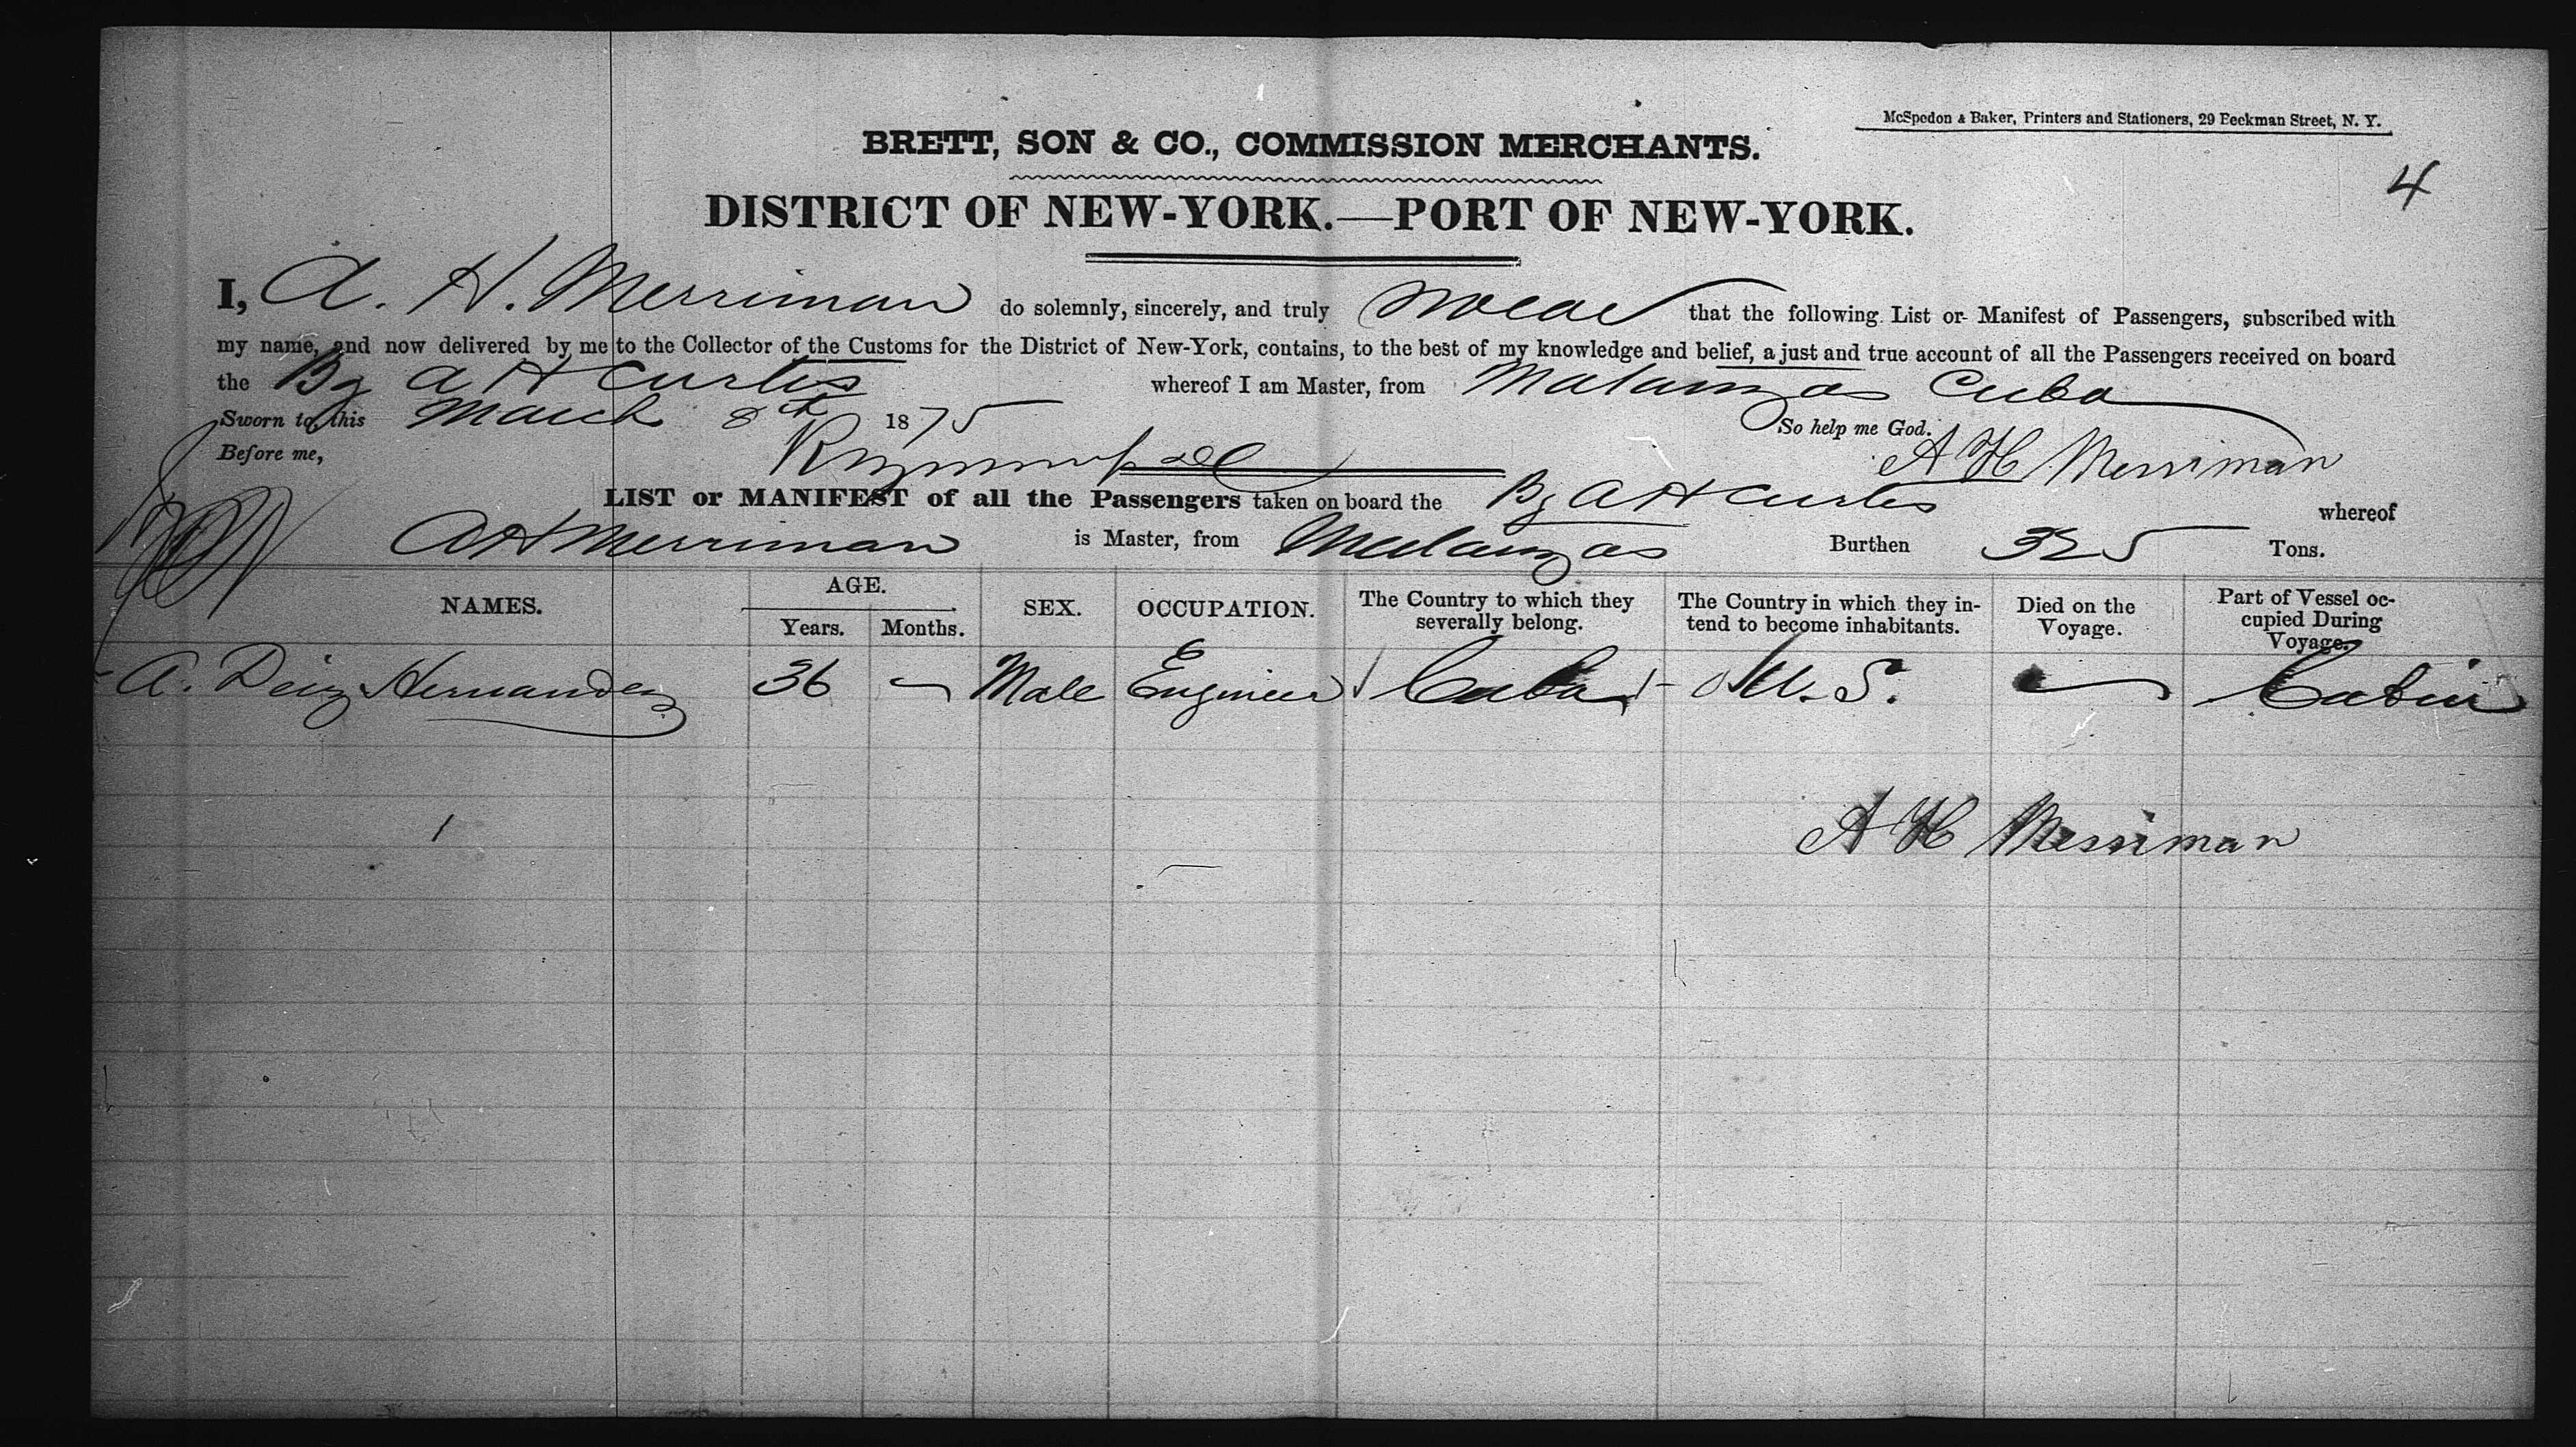 McSpedon & Baker, Printers and Stationers, 29 Beekman Street, N. Y.
BRETT, SON & CO., COMMISSION MERCHANTS.
4
DISTRICT OF NEW-YORK.—PORT OF NEW-YORK.
I, A. H. Merriman do solemnly, sincerely, and truly swear that the following List or Manifest of Passengers, subscribed with
my name, and now delivered by me to the Collector of the Customs for the District of New-York, contains, to the best of my knowledge and belief, a just and true account of all the Passengers received on board
the Bg A H Curtis whereof I am Master, from Matanzas Cuba
Sworn to, this March 8th 1875 So help me God.
Before me, A H Merriman
LIST or MANIFEST of all the Passengers taken on board the Bg A H Curtis whereof
A H Merriman is Master, from Matanzas Burthen 325 Tons.
NAMES. AGE. Years. Months. SEX. OCCUPATION. The Country to which they severally belong. The Country in which they intend to become inhabitants. Died on the Voyage. Part of Vessel occupied During Voyage.
A. Deiz Hernandez 36 — Male Engineer Cuba U. S. — Cabin
1
A H Merriman